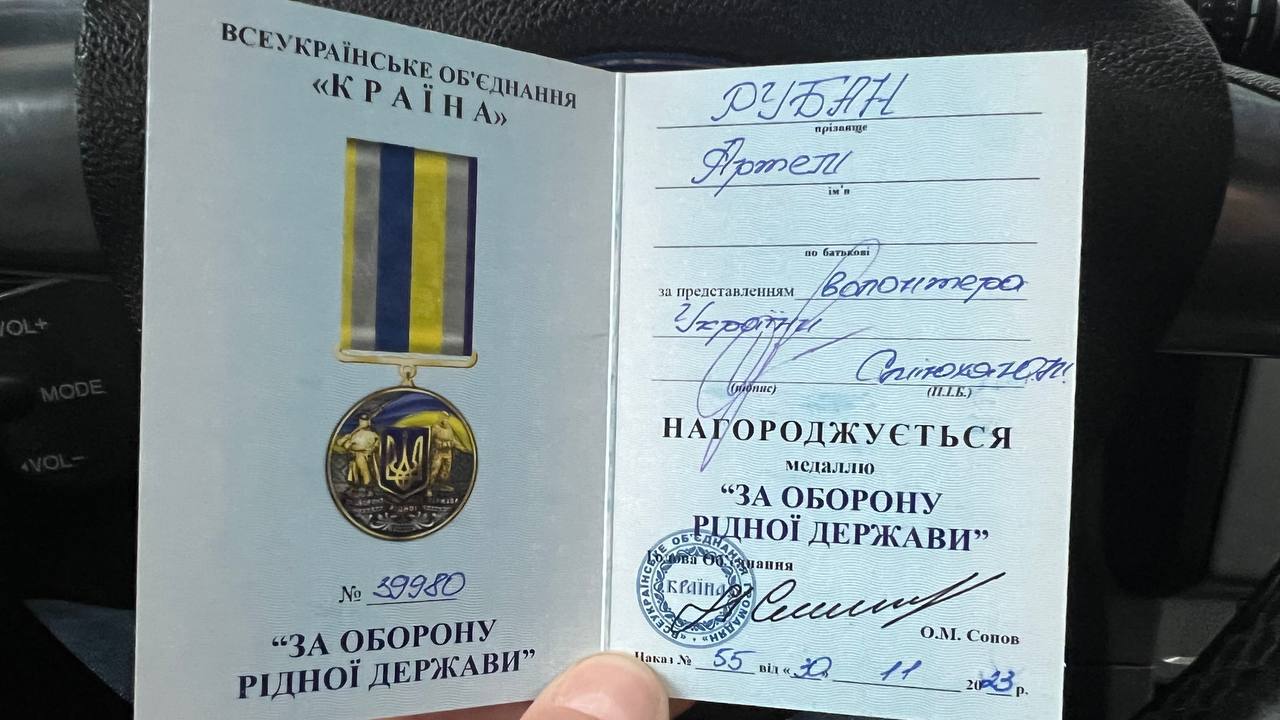 ВСЕУКРАЇНСЬКЕ ОБ'ЄДНАННЯ
«КРАЇНА»
№ 39980
“ЗА ОБОРОНУ
РІДНОЇ ДЕРЖАВИ”
РУБАН
прізвище
Артем
ім'я
по батькові
за представленням волонтера
України
(підпис)
(П.І.Б.)
НАГОРОДЖУЄТЬСЯ
медаллю
“ЗА ОБОРОНУ
РІДНОЇ ДЕРЖАВИ”
Голова Об'єднання
КРАЇНА
О.М. Сопов
Наказ № 55 від «30 11 2023 р.
VOL+
MODE
VOL−